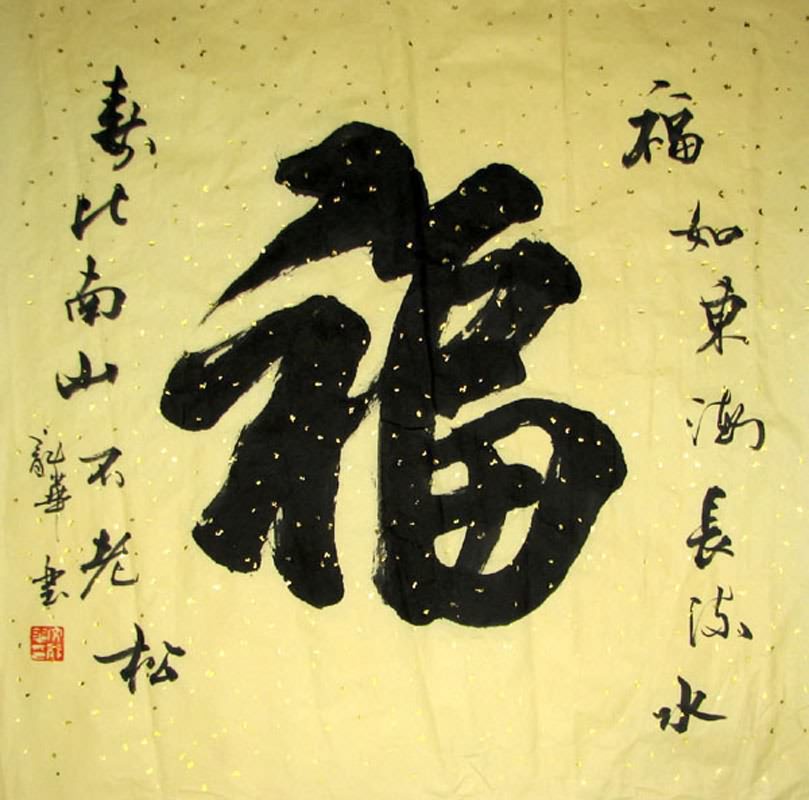 福如東海長流水
福
寿比南山不老松
龍華書